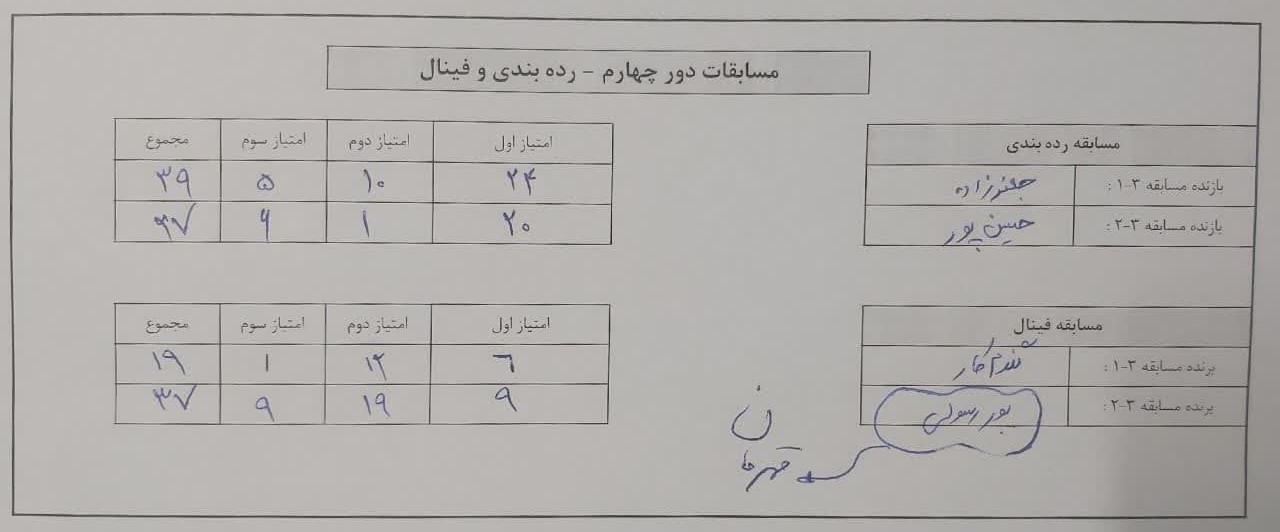 مسابقات دور چهارم - رده بندی و فینال
مسابقه رده بندی
بازنده مسابقه ۳-۱ : جعفرزاده
بازنده مسابقه ۳-۲ : حسین پور
امتیاز اول امتیاز دوم امتیاز سوم مجموع
۲۴ ۱۰ ۵ ۳۹
۲۰ ۱ ۶
مسابقه فینال
برنده مسابقه ۳-۱ : گندم کار
برنده مسابقه ۳-۲ : پور رسولی
امتیاز اول امتیاز دوم امتیاز سوم مجموع
۶ ۱۲ ۱ ۱۹
۹ ۱۹ ۹ ۳۷
قهرمان